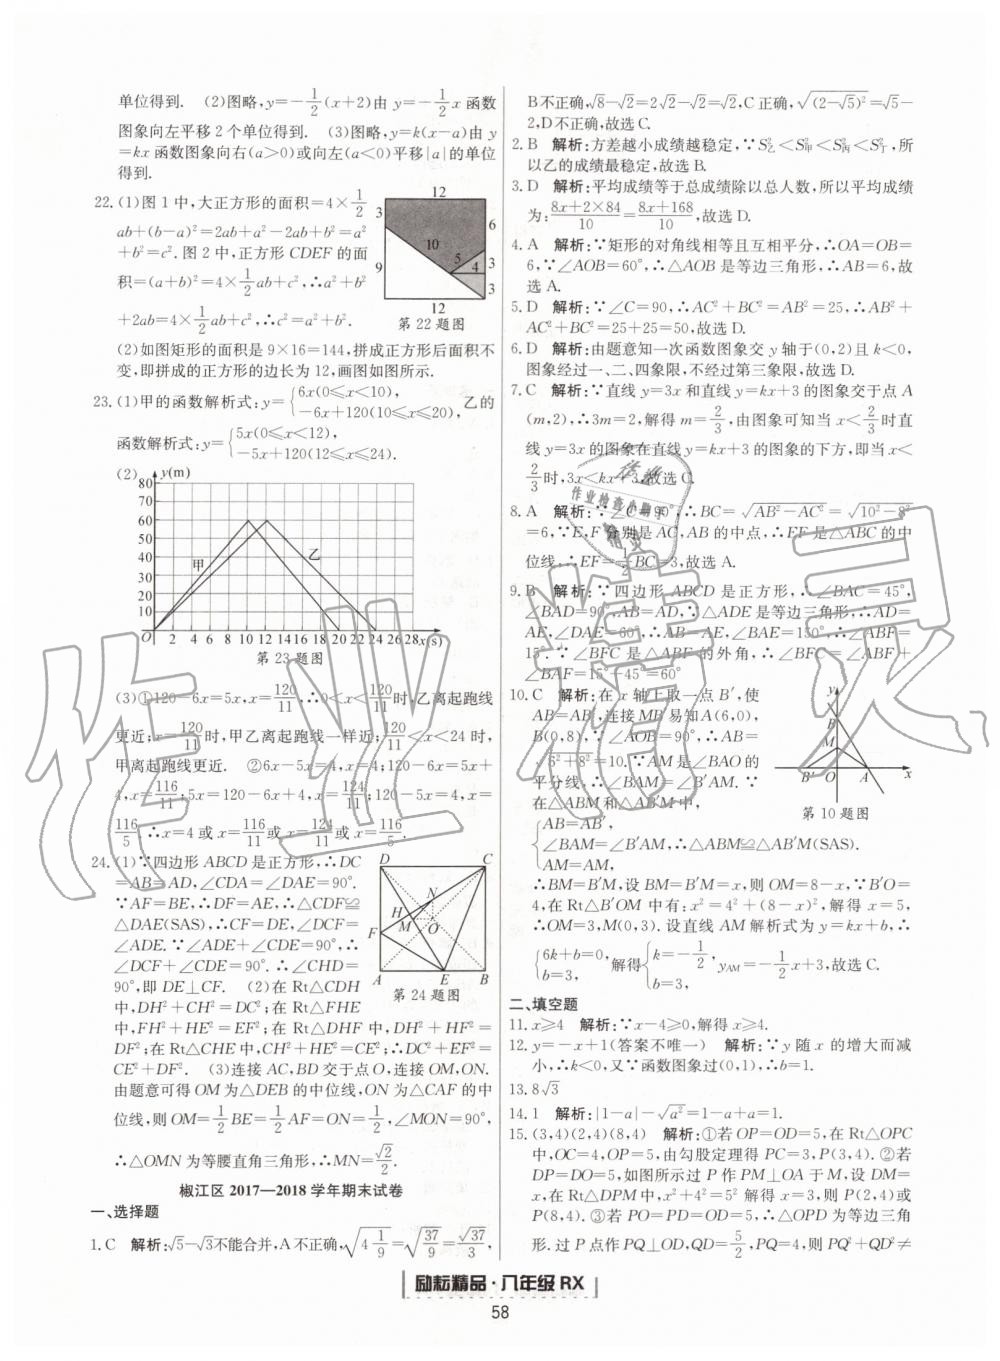 单位得到. (2)图略,y=-1/2(x+2)由 y=-1/2x 函数
图象向左平移 2 个单位得到. (3)图略,y=k(x-a)由 y
=kx 函数图象向右(a>0)或向左(a<0)平移|a|的单位
得到.
22.(1)图 1 中,大正方形的面积=4×1/2
ab+(b-a)²=2ab+a²-2ab+b²=a²
+b²=c². 图 2 中,正方形 CDEF 的面
积=(a+b)²=4×1/2ab+c²,∴a²+b²
+2ab=4×1/2ab+c²,∴c²=a²+b².
12
3
6
10
5
4
3
9
3
12
第 22 题图
(2)如图矩形的面积是 9×16=144,拼成正方形后面积不
变,即拼成的正方形的边长为 12,画图如图所示.
23.(1)甲的函数解析式:y={6x(0≤x<10), -6x+120(10≤x≤20), 乙的
函数解析式:y={5x(0≤x<12), -5x+120(12≤x≤24).
(2)
y(m)
80
70
60
50
40
30
20
10
甲
乙
O 2 4 6 8 10 12 14 16 18 20 22 24 26 28 x(s)
第 23 题图
(3)①120-6x=5x,x=120/11,∴0<x<120/11时,乙离起跑线
更近;x=120/11时,甲乙离起跑线一样近;120/11<x<24 时,
甲离起跑线更近. ②6x-5x=4,x=4;120-6x=5x+
4,x=116/11;5x=120-6x+4,x=124/11;120-5x=4,x=
116/5 ∴x=4 或 x=116/11或 x=124/11或 x=116/5.
24.(1)∵四边形 ABCD 是正方形,∴DC
=AB=AD,∠CDA=∠DAE=90°.
∵AF=BE,∴DF=AE,∴△CDF≌
△DAE(SAS),∴CF=DE,∠DCF=
∠ADE. ∵∠ADE+∠CDE=90°,∴
∠DCF+∠CDE=90°. ∴∠CHD=
90°,即 DE⊥CF. (2)在 Rt△CDH
中,DH²+CH²=DC²;在 Rt△FHE
中,FH²+HE²=EF²;在 Rt△DHF 中,DH²+HF²=
DF²;在 Rt△CHE 中,CH²+HE²=CE²;∴DC²+EF²=
CE²+DF². (3)连接 AC,BD 交于点 O,连接 OM,ON.
由题意可得 OM 为△DEB 的中位线,ON 为△CAF 的中
位线,则 OM=1/2BE=1/2AF=ON=1/2,∠MON=90°,
∴△OMN 为等腰直角三角形,∴MN=√2/2.
D
C
N
H
M
O
F
A
E
B
第 24 题图
椒江区 2017—2018 学年期末试卷
一、选择题
1.C 解析:√5-√3不能合并,A 不正确,√(4 1/9)=√(37/9)=√37/3,
B 不正确,√8-√2=2√2-√2=√2,C 正确,√(2-√5)²=√5-
2,D 不正确,故选 C.
2.B 解析:方差越小成绩越稳定,∵S²乙<S²甲<S²丙<S²丁,所
以乙的成绩最稳定,故选 B.
3.D 解析:平均成绩等于总成绩除以总人数,所以平均成绩
为:(8x+2×84)/10=(8x+168)/10,故选 D.
4.A 解析:∵矩形的对角线相等且互相平分,∴OA=OB=
6,∵∠AOB=60°,∴△AOB 是等边三角形,∴AB=6,故
选 A.
5.D 解析:∵∠C=90,∴AC²+BC²=AB²=25,∴AB²+
AC²+BC²=25+25=50,故选 D.
6.D 解析:由题意知一次函数图象交 y 轴于(0,2)且 k<0,
图象经过一、二、四象限,不经过第三象限,故选 D.
7.C 解析:∵直线 y=3x 和直线 y=kx+3 的图象交于点 A
(m,2),∴3m=2,解得 m=2/3,由图象可知当 x<2/3时直
线 y=3x 的图象在直线 y=kx+3 的图象的下方,即当 x<
2/3时,3x<kx+3,故选 C.
8.A 解析:∵∠C=90°,∴BC=√(AB²-AC²)=√(10²-8²)
=6,∵E,F 分别是 AC,AB 的中点,∴EF 是△ABC 的中
位线,∴EF=1/2BC=3,故选 A.
9.B 解析:∵四边形 ABCD 是正方形,∴∠BAC=45°,
∠BAD=90°,AB=AD,∵△ADE 是等边三角形,∴AD=
AE,∠DAE=60°,∴AB=AE,∠BAE=150°,∴∠ABF=
15°. ∵∠BFC 是△ABF 的外角,∴∠BFC=∠ABF+
∠BAF=15°+45°=60°
10.C 解析:在 x 轴上取一点 B′,使
AB=AB′,连接 MB′易知 A(6,0),
B(0,8),∵∠AOB=90°,∴AB=
√(6²+8²)=10. ∵AM 是∠BAO 的
平分线,∴∠BAM=∠B′AM. ∵
在△ABM 和△AB′M 中,
{AB=AB′,
∠BAM=∠B′AM,∴△ABM≌△AB′M(SAS).
AM=AM,
y
B
M
B′ O A x
第 10 题图
∴BM=B′M,设 BM=B′M=x,则 OM=8-x,∵B′O=
4,在 Rt△B′OM 中有:x²=4²+(8-x)²,解得 x=5,
∴OM=3,M(0,3). 设直线 AM 解析式为 y=kx+b,∴
{6k+b=0, b=3, 解得{k=-1/2, b=3, yAM=-1/2x+3,故选 C.
二、填空题
11.x≥4 解析:∵x-4≥0,解得 x≥4.
12.y=-x+1(答案不唯一) 解析:∵y 随 x 的增大而减
小,∴k<0,又∵函数图象过(0,1),∴b=1.
13.8√3
14.1 解析:|1-a|-√a²=1-a+a=1.
15.(3,4)(2,4)(8,4) 解析:①若 OP=OD=5,在 Rt△OPC
中,OC=4,OP=5,由勾股定理得 PC=3,P(3,4). ②若
DP=DO=5,如图所示过 P 作 PM⊥OA 于 M,设 DM=
x,在 Rt△DPM 中,x²+4²=5² 解得 x=3,则 P(2,4)或
P(8,4). ③若 PO=PD=OD=5,∴△OPD 为等边三角
形. 过 P 点作 PQ⊥OD,QD=5/2,PQ=4,则 PQ²+QD²≠
励耘精品·八年级 RX
58
作业精灵
作业检查小助手